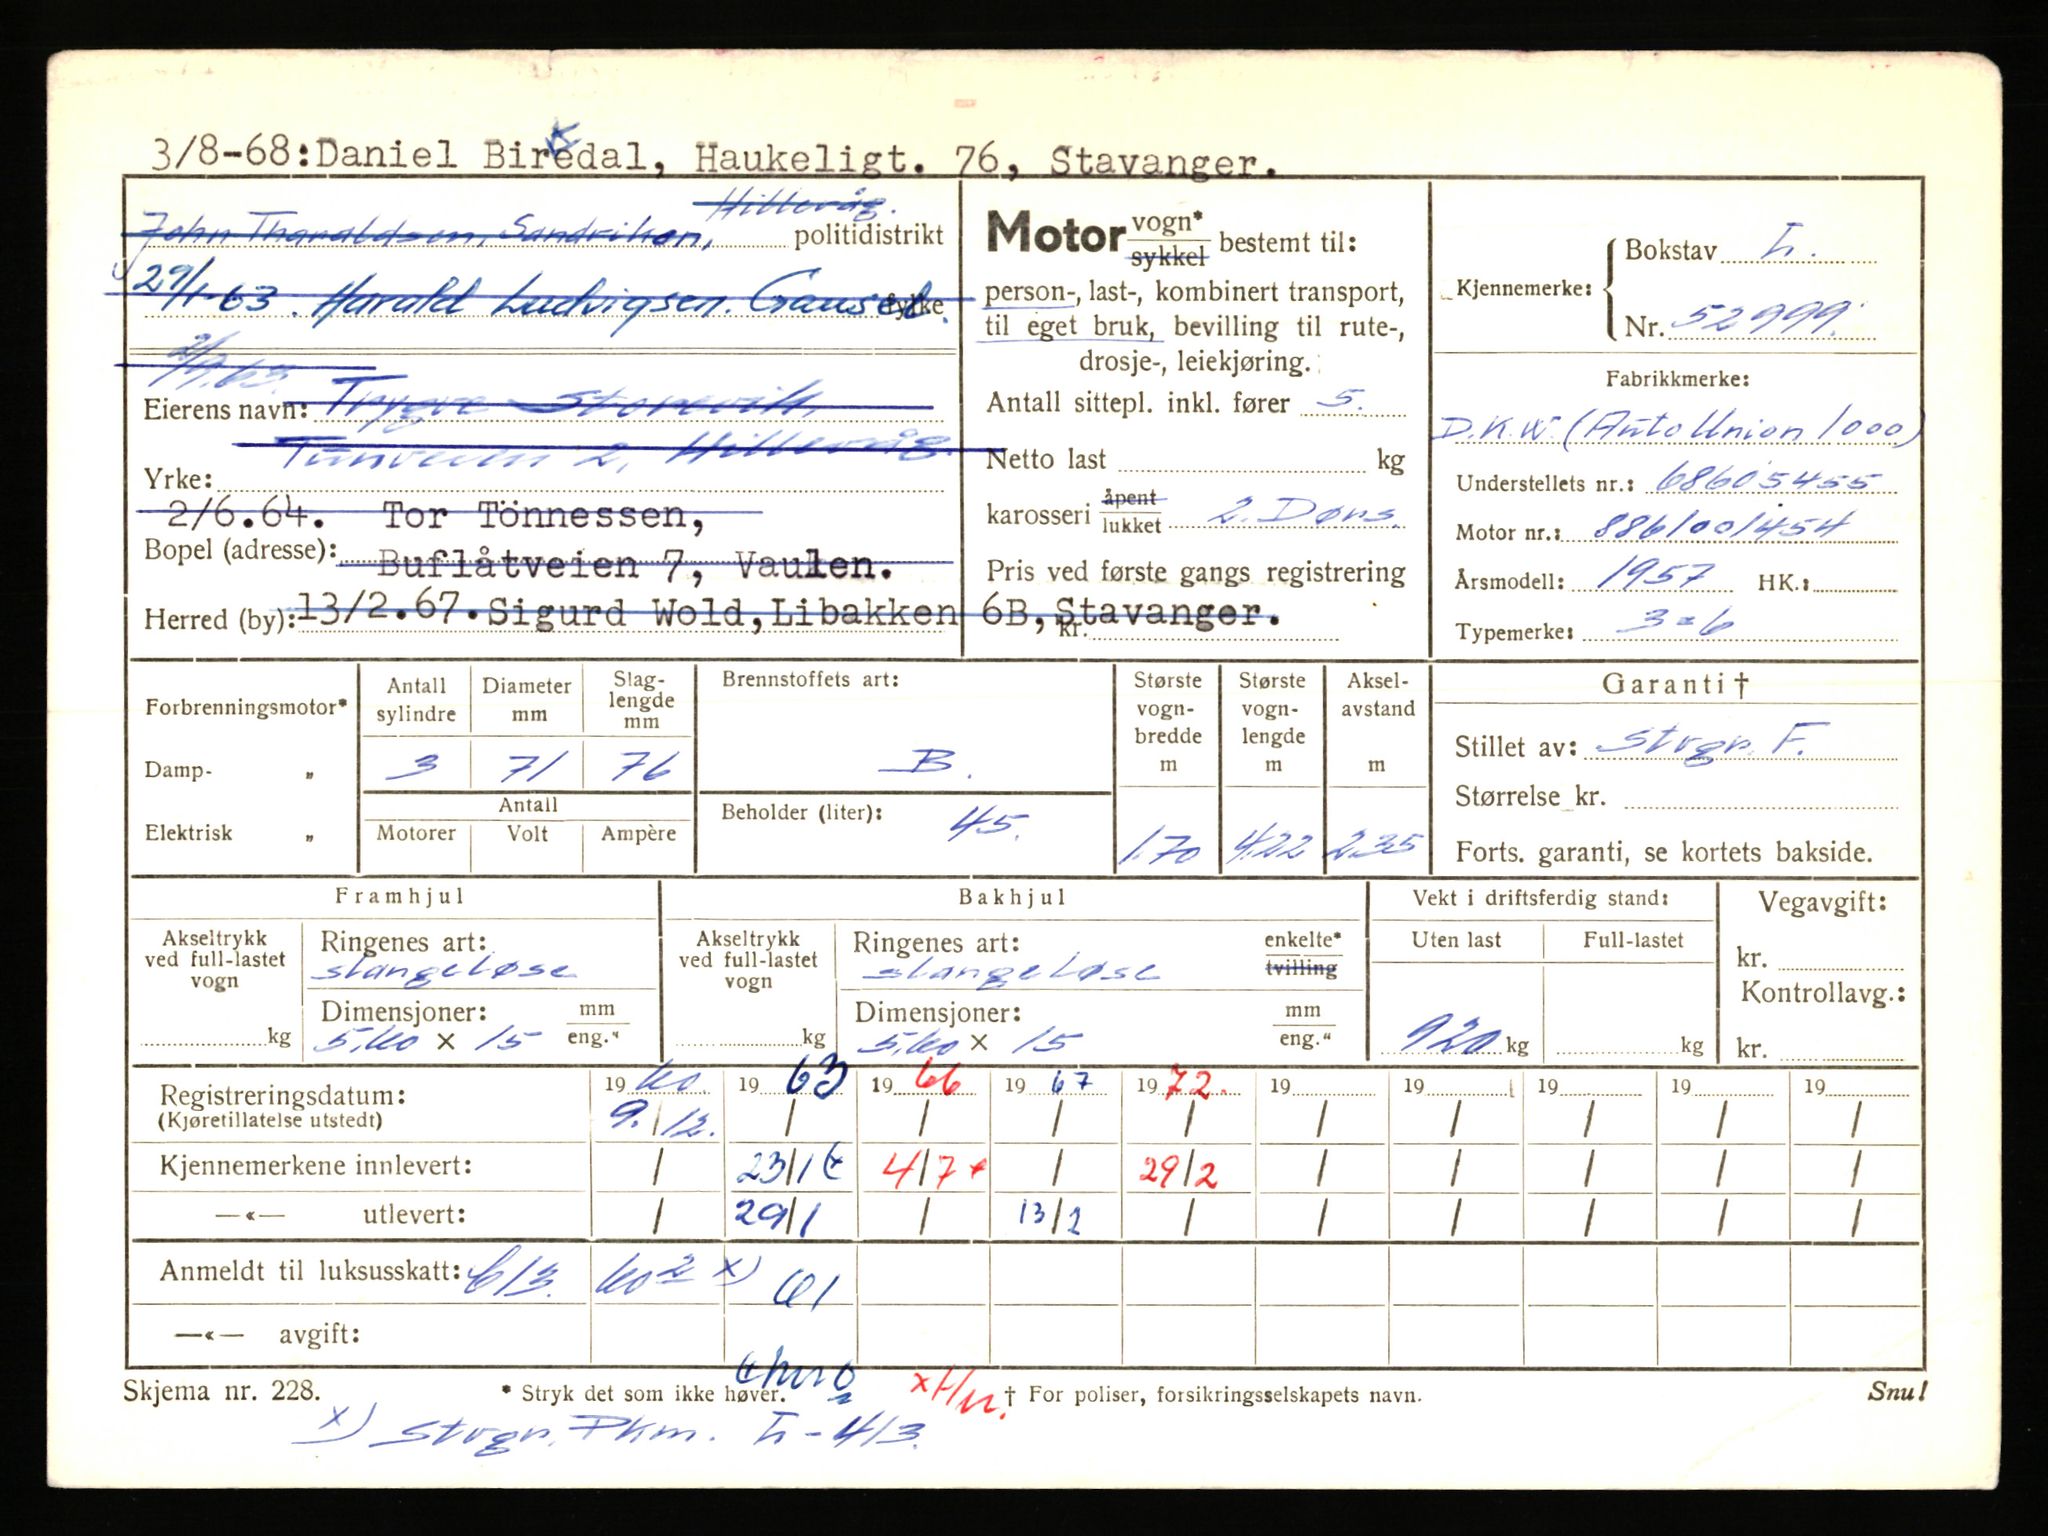 3/8-68: Daniel Biredal, Haukeligt. 76, Stavanger.
K
Hillevåg.
John Tharaldsen, Sandviken, politidistrikt
29/1-63. Harald Ludvigsen. Gausel. fylke
2/9.63.
Eierens navn: Trygve Storevik,
Tunveien 2, Hillevåg.
Yrke:
2/6.64. Tor Tönnessen,
Bopel (adresse): Buflåtveien 7, Vaulen.
Herred (by): 13/2.67. Sigurd Wold, Libakken 6B, Stavanger.
Motor vogn* sykkel bestemt til:
person-, last-, kombinert transport,
til eget bruk, bevilling til rute-,
drosje-, leiekjøring.
Antall sittepl. inkl. fører 5.
Netto last kg
karosseri åpent lukket 2. Dørs.
Pris ved første gangs registrering
kr.
Kjennemerke: Bokstav L.
Nr. 52999.
Fabrikkmerke:
D.K.W. (Auto Union 1000)
Understellets nr.: 68605455
Motor nr.: 886/001454
Årsmodell: 1957 HK.:
Typemerke: 3=6
Forbrenningsmotor*
Damp- „
Elektrisk „
Antall sylindre Diameter mm Slag-lengde mm
3 71 76
Antall
Motorer Volt Ampère
Brennstoffets art:
B.
Beholder (liter): 45.
Største vogn-bredde m Største vogn-lengde m Aksel-avstand m
1.70 4.22 2.35
Garanti †
Stillet av: Stvgr. F.
Størrelse kr.
Forts. garanti, se kortets bakside.
Framhjul
Akseltrykk ved full-lastet vogn
kg
Ringenes art:
slangeløse
Dimensjoner: mm eng."
5.60 x 15
Bakhjul
Akseltrykk ved full-lastet vogn
kg
Ringenes art: enkelte* tvilling
slangeløse
Dimensjoner: mm eng."
5.60 x 15
Vekt i driftsferdig stand:
Uten last Full-lastet
920 kg kg
Vegavgift:
kr.
Kontrollavg.:
kr.
Registreringsdatum: 1960 1963 1966 1967 1972. 19 19 19 19 19
(Kjøretillatelse utstedt) 9./12. / / / / / / / / /
Kjennemerkene innlevert: / 23/1 4/7 x / 29/2 / / / / /
—«— utlevert: / 29/1 / 13/2 / / / / / /
Anmeldt til luksusskatt: 6/3. 60 2 x) 61
—«— avgift:
Skjema nr. 228. * Stryk det som ikke høver. † For poliser, forsikringsselskapets navn. Snu!
x) Stvgr. Pkm. L-413.